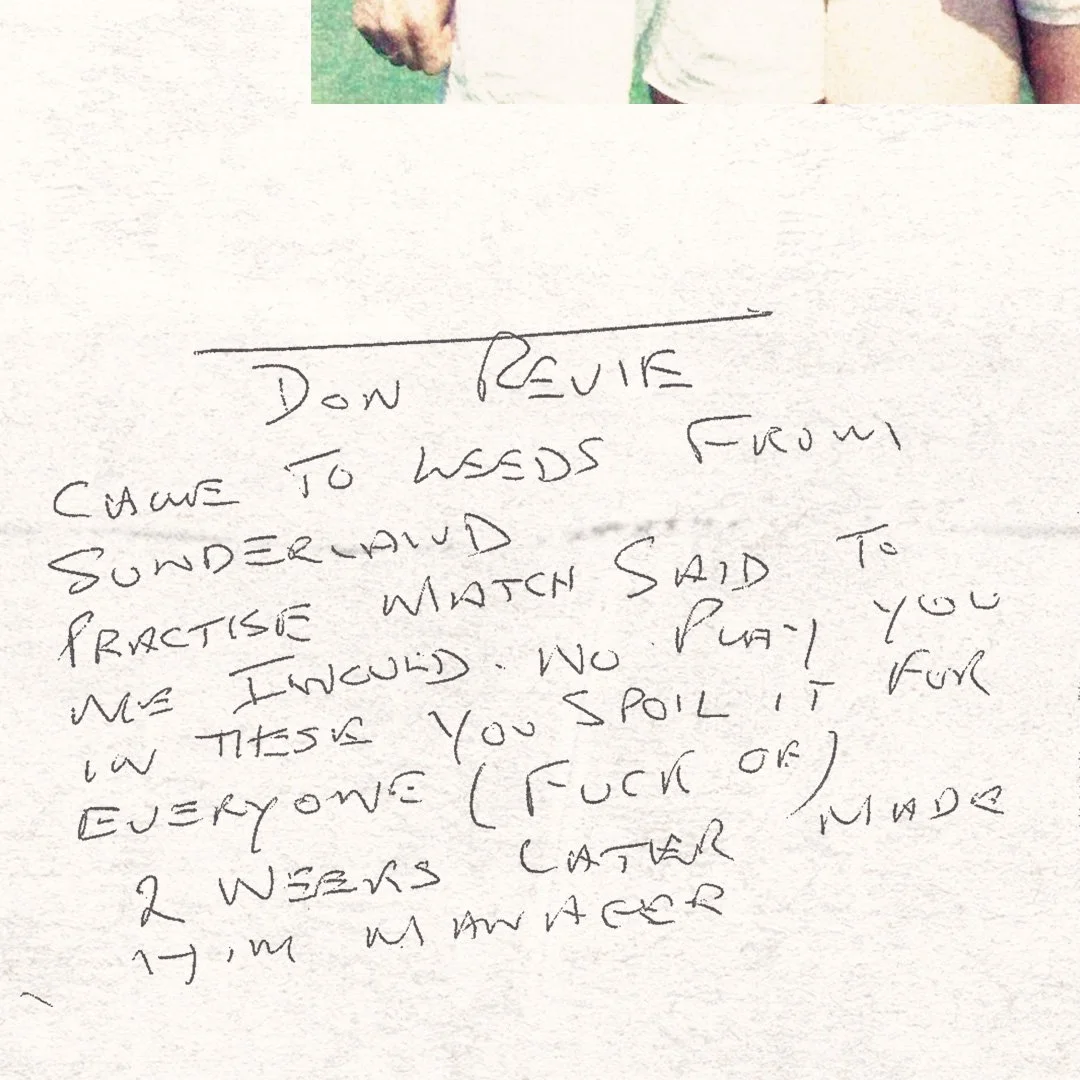 DON REVIE
CAME TO LEEDS FROM
SUNDERLAND
PRACTISE MATCH SAID TO
ME I WOULD. NO. PLAY YOU
IN THESE YOU SPOIL IT FUR
EVERYONE (FUCK OF)
2 WEEKS LATER MADE
HIM MANAGER